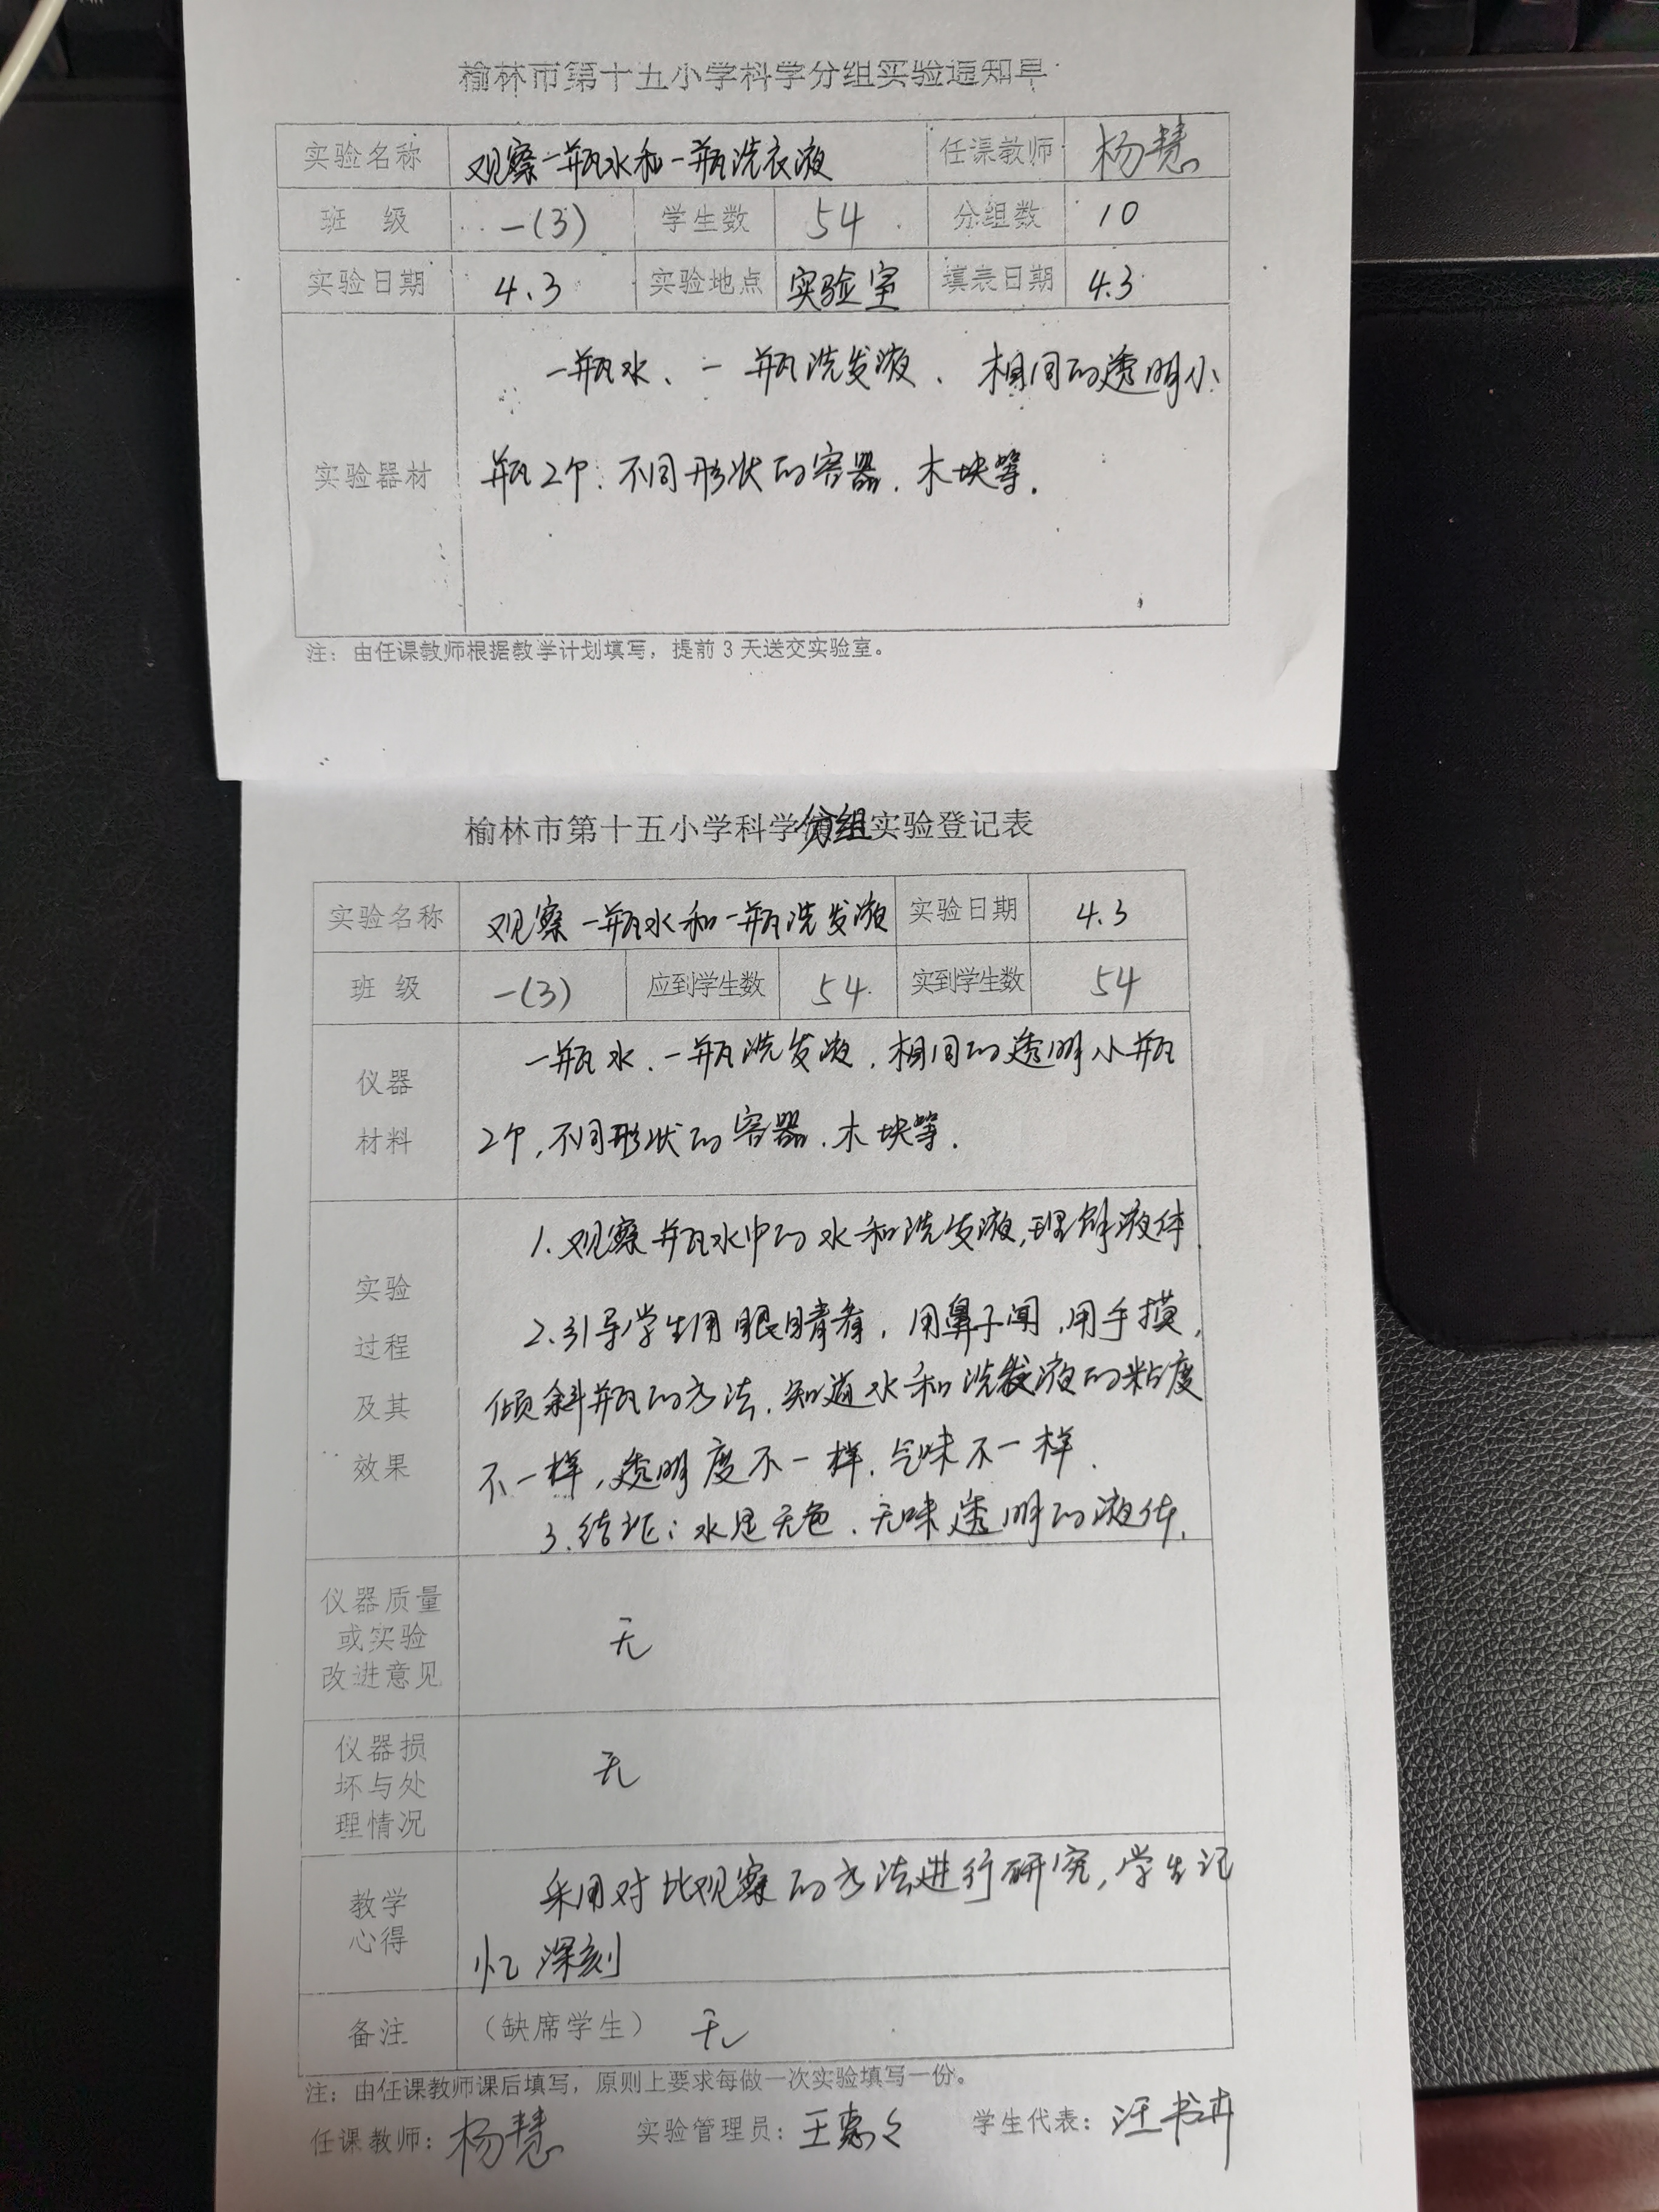 榆林市第十五小学科学分组实验通知单
实验名称 观察一瓶水和一瓶洗衣液 任课教师 杨慧
班 级 一(3) 学生数 54 分组数 10
实验日期 4.3 实验地点 实验室 填表日期 4.3
一瓶水、一瓶洗发液、相同的透明小
实验器材 瓶2个、不同形状的容器、木块等.
注：由任课教师根据教学计划填写，提前3天送交实验室。
榆林市第十五小学科学分组实验登记表
实验名称 观察一瓶水和一瓶洗发液 实验日期 4.3
班 级 一(3) 应到学生数 54 实到学生数 54
仪器
材料
一瓶水、一瓶洗发液，相同的透明小瓶
2个，不同形状的容器、木块等.
实验
过程
及其
效果
1.观察瓶水中的水和洗发液,理解液体
2.引导学生用眼睛看，用鼻子闻，用手摸，
倾斜瓶的方法，知道水和洗发液的粘度
不一样，透明度不一样，气味不一样.
3.结论：水是无色、无味透明的液体.
仪器质量
或实验
改进意见
无
仪器损
坏与处
理情况
无
教学
心得
采用对比观察的方法进行研究，学生记
忆深刻
备注 （缺席学生） 无
注：由任课教师课后填写，原则上要求每做一次实验填写一份。
任课教师：杨慧 实验管理员：王惠 学生代表：汪书